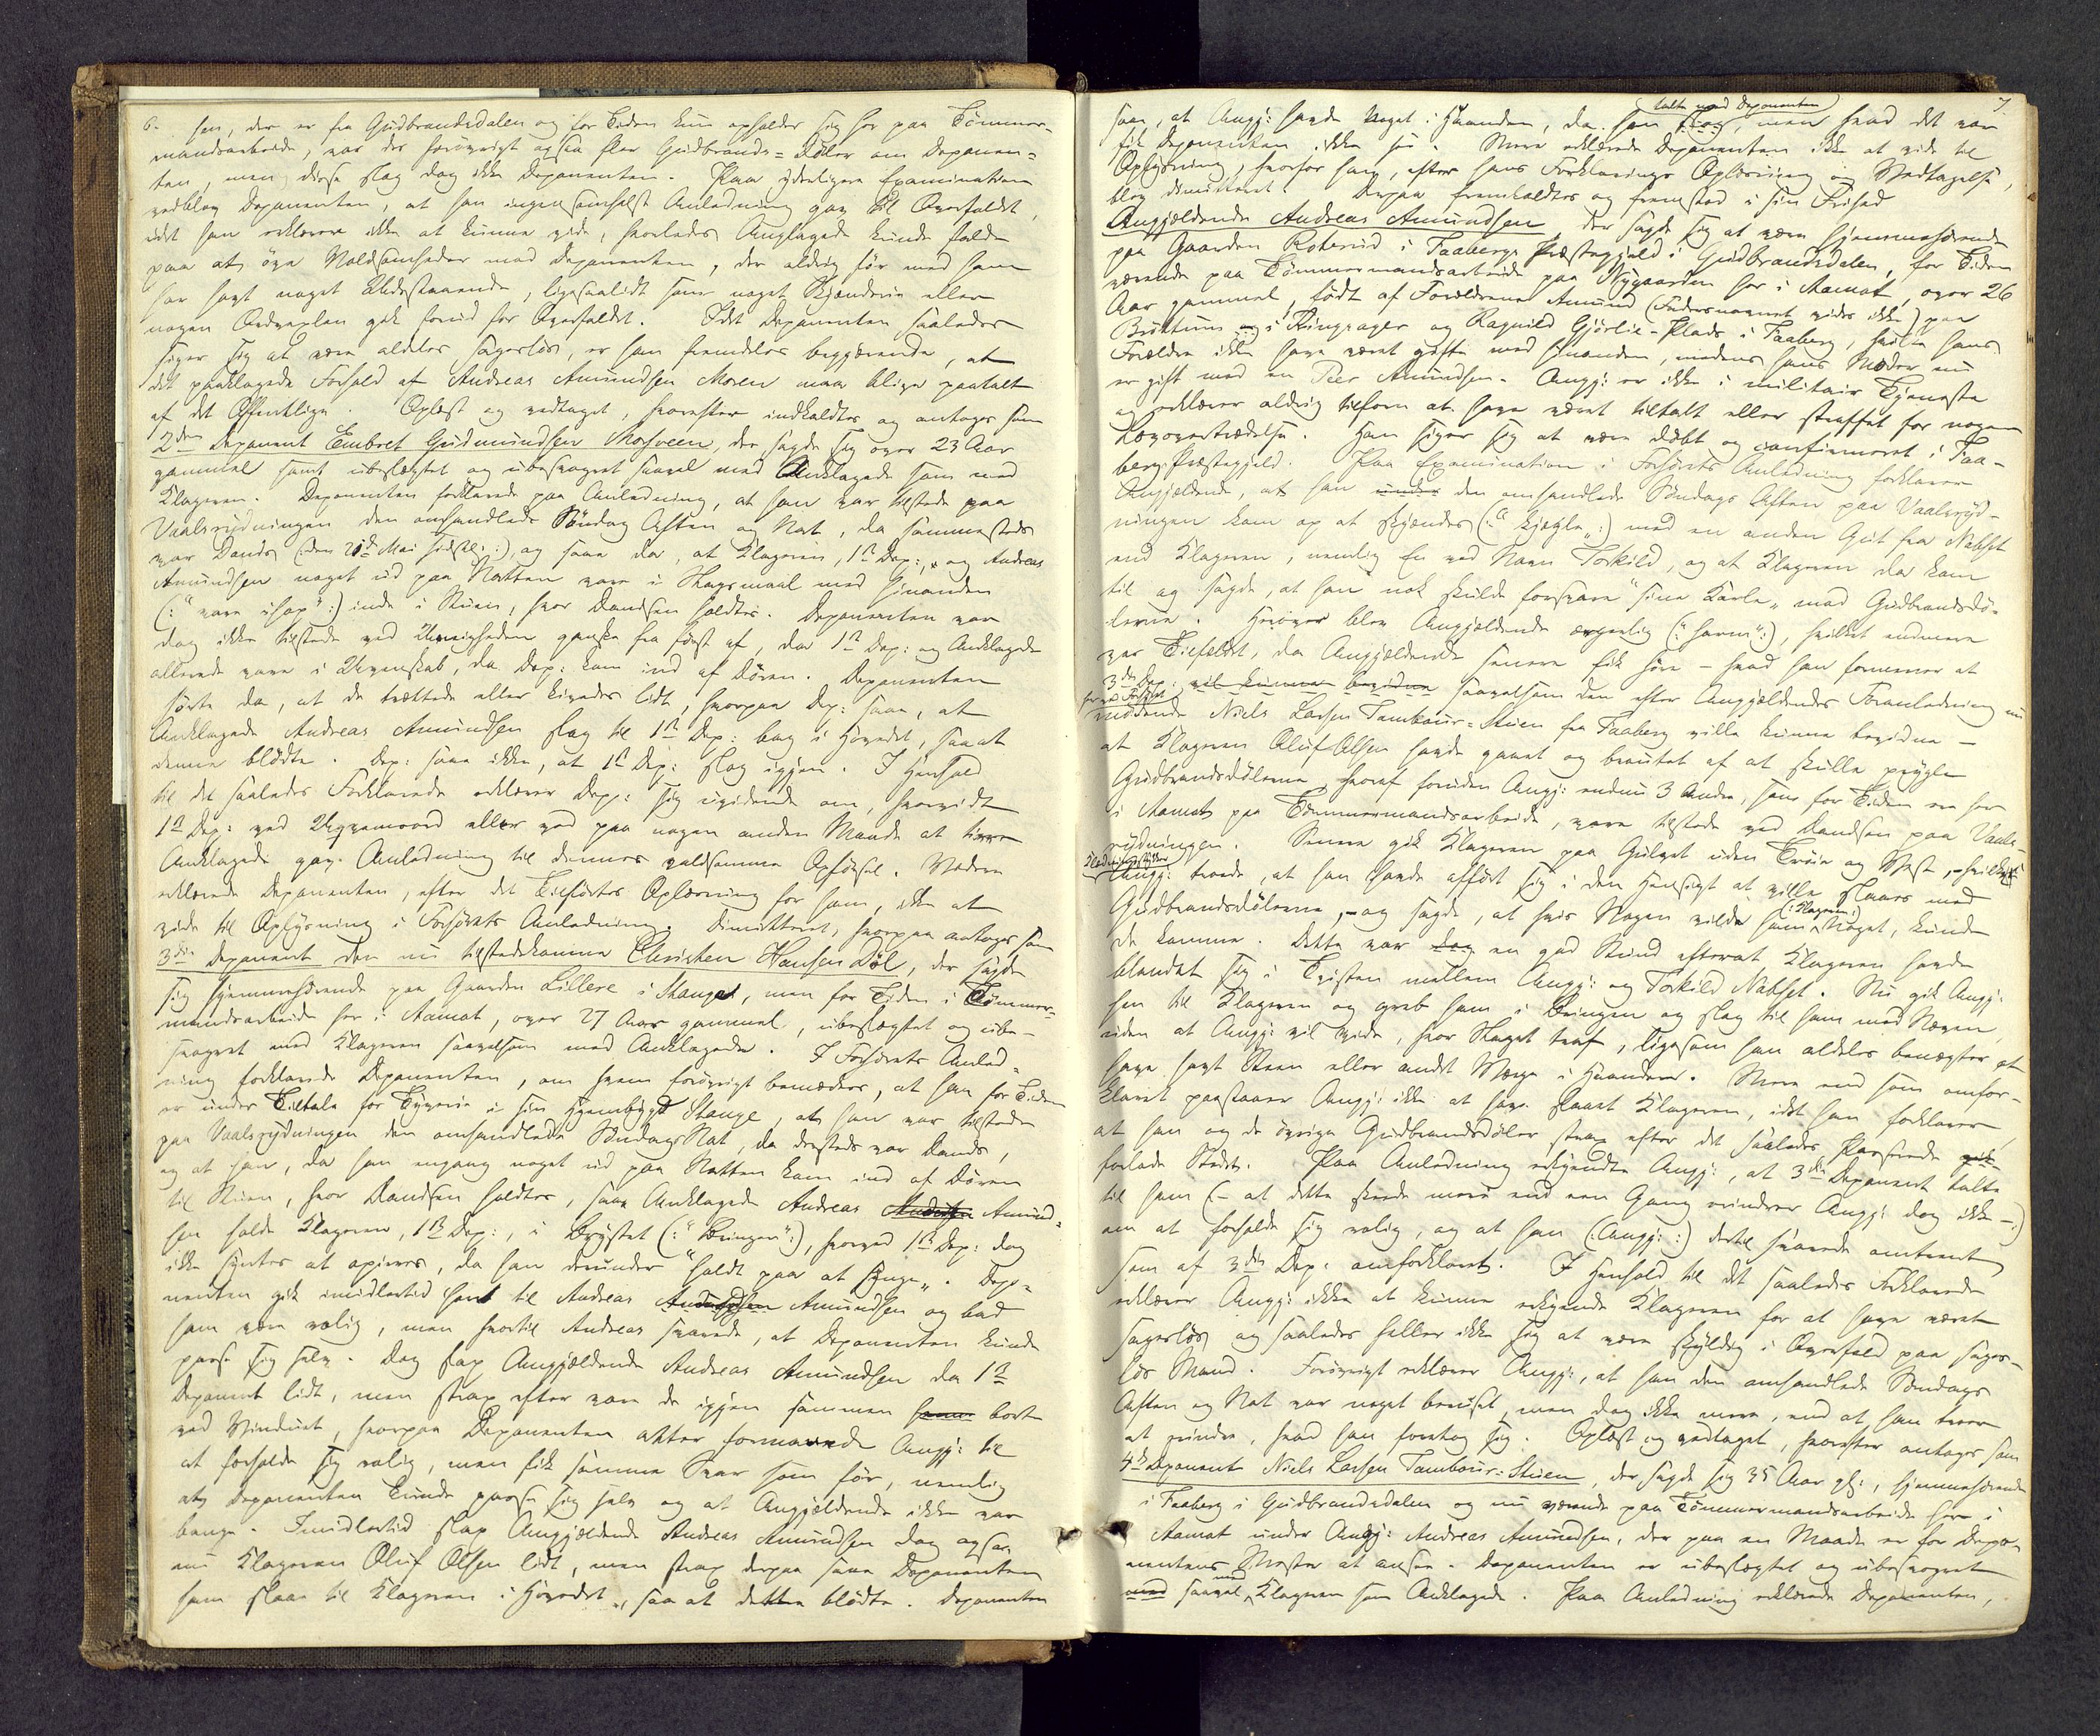 6.
han, der er fra Gudbrandsdalen og for Tiden kun opholder sig her paa Tømmer-
mandsarbeide, var der forøvrigt ogsaa fler Gudbrands=Døler om Deponen=
ten, men disse slog dog ikke Deponenten. Paa yderligere Examination
vedblev Deponenten, at han ingensomhelst Anledning gav til Overfaldet,
idet han erklærer ikke at kunne vide, hvorledes Anklagede kunde falde
paa at øve Voldsomheder mod Deponenten, der aldrig før med ham
har havt noget Udestaaende, ligesaalidt som noget Skjænderie eller
nogen Ordvexlen gik forud for Overfaldet. Idet Deponenten saaledes
siger sig at være aldeles sagesløs, er han fremdeles begjærende, at
det paaklagede Forhold af Andreas Amundsen Moren maa blive paatalt
af det Offentlige. Oplæst og vedtaget, hvorefter indkaldtes og antoges som
2den Deponent Embret Gudmundsen Mosveen, der sagde sig over 23 Aar
gammel samt ubeslægtet og ubesvogret saavel med Anklagede som med
Klageren. Deponenten forklarede paa Anledning, at han var tilstede paa
Vaalsrydningen den omhandlede Søndag Aften og Nat, da sammesteds
var Dands (den 21de Mai sidstl:), og saae da, at Klageren, 1ste Dep:, og Andreas
Amundsen noget ud paa Natten vare i Slagsmaal med hinanden
(: "vare ihop" :) inde i Stuen, hvor Dandsen holdtes. Deponenten var
dog ikke tilstede ved Uenigheden ganske fra først af, da 1ste Dep: og Anklagede
allerede vare i Uvenskab, da Dep: kom ind af Døren. Deponenten
hørte da, at de trættede eller kivedes lidt, hvorpaa Dep: saae, at
Anklagede Andreas Amundsen slog til 1ste Dep: bag i Hovedet, saa at
denne blødte. Dep: saae ikke, at 1ste Dep: slog igjen. I Henhold
til det saaledes Forklarede erklærer Dep: sig uvidende om, hvorvidt
1ste Dep: ved Uqvemsord eller ved paa nogen anden Maade at tirre
Anklagede gav Anledning til dennes voldsomme Opførsel. Videre
erklærede Deponenten, efter det Tilførtes Oplæsning for ham, ikke at
vide til Oplysning i Forhørets Anledning. Dimitteret, hvorpaa antoges som
3die Deponent den nu tilstedekomne Christen Hansen Døl, der sagde
sig hjemmehørende paa Gaarden Lillere i Stange, men for Tiden i Tømmer-
mandsarbeide her i Aamot, over 27 Aar gammel, ubeslægtet og ube-
svogret med Klageren saavelsom med Anklagede. I Forhørets Anled-
ning forklarede Deponenten, om hvem forøvrigt bemærkes, at han for Tiden
er under Tiltale for Tyverie i sin Hjembygd Stange, at han var tilstede
paa Vaalsrydningen den omhandlede SøndagsNat, da dersteds var Dands,
og at han, da han engang noget ud paa Natten kom ind af Døren
til Stuen, hvor Dandsen holdtes, saae Anklagede Andreas Andersen Amund-
sen holde Klageren, 1ste Dep:, i Brystet (: "Bringen" :), hvorved 1ste Dep: dog
ikke syntes at opirres, da han derunder "holdt paa at synge". Depo-
nenten gik imidlertid hent til Andreas Amundsen og bad
ham være rolig, men hvortil Andreas svarede, at Deponenten kunde
passe sig selv. Dog slap Angjældende Andreas Amundsen da 1ste
Deponent lidt, men strax efter vare de igjen sammen henne borte
ved Vinduet, hvorpaa Deponenten atter formanede Angj: til
at forholde sig rolig, men fik samme Svar som før, nemlig
at Deponenten kunde passe sig selv og at Angjældende ikke var
bange. Imidlertid slap Angjældende Andreas Amundsen dog ogsaa
nu Klageren Oluf Olsen lidt, men strax derpaa saae Deponenten
ham slaae til Klageren i Hovedet, saa at dette blødte. Deponenten
7
talte med Deponenten
saae, at Angj: havde Noget i Haanden, da han slog, men hvad det var
fik Deponenten ikke see. Mere erklærede Deponenten ikke at vide til
Oplysning, hvorfor han, efter hans Forklarings Oplæsning og Vedtagelse,
blev dimitteret. Derpaa fremkaldtes og fremstod i sin Frihed
Angjældende Andreas Amundsen, der sagde sig at være hjemmehørende
paa Gaarden Roterud i Faabergs Præstegjeld i Gudbrandsdalen, for Tiden
værende paa Tømmermandsarbeide paa Nygaarden her i Aamot, over 26
Aar gammel, født af Forældrene Amund (Fadersnavnet vides ikke) paa
Bruttum i Ringsager og Ragnild Gjørlie-Plads i Faaberg, hvilke hans
Forældre ikke have været gifte med hinanden, medens hans Moder nu
er gift med en Peer Amundsen. Angj: er ikke i militair Tjeneste
og erklærer aldrig tilforn at have været tiltalt eller straffet for nogen
Lovovertrædelse. Han siger sig at være døbt og confirmeret i Faa-
berg Præstegjeld. Paa Examination i Forhørets Anledning forklarer
Angjældende, at han under den omhandlede Søndags Aften paa Vaalsryd-
ningen kom op at skjendes (: "kjegle" :) med en anden Gut fra Nabset
end Klageren, nemlig En ved Navn Torkild, og at Klageren da kom
til og sagde, at han nok skulde forsvare "sine Karle" mod Gudbrandsdø-
lerne. Herover blev Angjældende ærgerlig (: "harm" :), hvilket endmere
var Tilfældet, da Angjældende senere fik høre - hvad han formener at
3die Dep: vil kunne bevidne saavelsom den efter Angjældendes Foranledning nu
for Forhøret
mødende Niels Larsen Tambour-Stuen fra Faaberg ville kunne bevidne -
at Klageren Oluf Olsen havde gaaet og brautet af at skulle prygle
Gudbrandsdølerne, hvoraf foruden Angj: endnu 3 Andre, som for Tiden ere her
i Aamot paa Tømmermandsarbeide, vare tilstede ved Dandsen paa Vaals-
rydningen. Senere gik Klageren paa Gulvet uden Trøie og Vest, - hvilke
Klædningsstykker
Angj: troede, at han havde afført sig i den Hensigt at ville slaaes med
Gudbrandsdølerne, - og sagde, at hvis Nogen vilde ham (: Klageren :) Noget, kunde
de komme. Dette var dog en god Stund efterat Klageren havde
blandet sig i Tvisten mellem Angj: og Torkild Nabset. Nu gik Angj:
hen til Klageren og greb ham i Bringen og slog til ham med Næven
uden at Angj: vil vide, hvor Slaget traf, ligesom han aldeles benægter at
have havt Steen eller andet Værge i Haanden. Mere end som omfor-
klaret paastaaer Angj: ikke at have slaaet Klageren, idet han forklarer,
at han og de øvrige Gudbrandsdøler strax efter det saaledes Passerede
forlode Stedet. Paa Anledning erkjendte Angj:, at 3die Deponent talte
til ham (- at dette skede mere end een Gang erindrer Angj: dog ikke -)
om at forholde sig rolig, og at han (: Angj: :) dertil svarede omtrent
som af 3die Dep: omforklaret. I Henhold til det saaledes Forklarede
erklærer Angj: ikke at kunne erkjende Klageren for at have været
sagesløs og saaledes heller ikke sig at være skyldig i Overfald paa sages-
løs Mand. Forøvrigt erklærer Angj:, at han den omhandlede Søndags
Aften og Nat var noget beruset, men dog ikke mere, end at han troer
at erindre, hvad han foretog sig. Oplæst og vedtaget, hvorefter antoges som
4de Deponent Niels Larsen Tambour-Stuen, der sagde sig 35 Aar gl:, hjemmehørende
i Faaberg i Gudbrandsdalen og nu værende paa Tømmermandsarbeide her i
Aamot under Angj: Andreas Amundsen, der paa en Maade er for Depo-
nentens Mester at ansee. Deponenten er ubeslægtet og ubesvogret
med saavel med Klageren som Anklagede. Paa Anledning erklærede Deponenten,